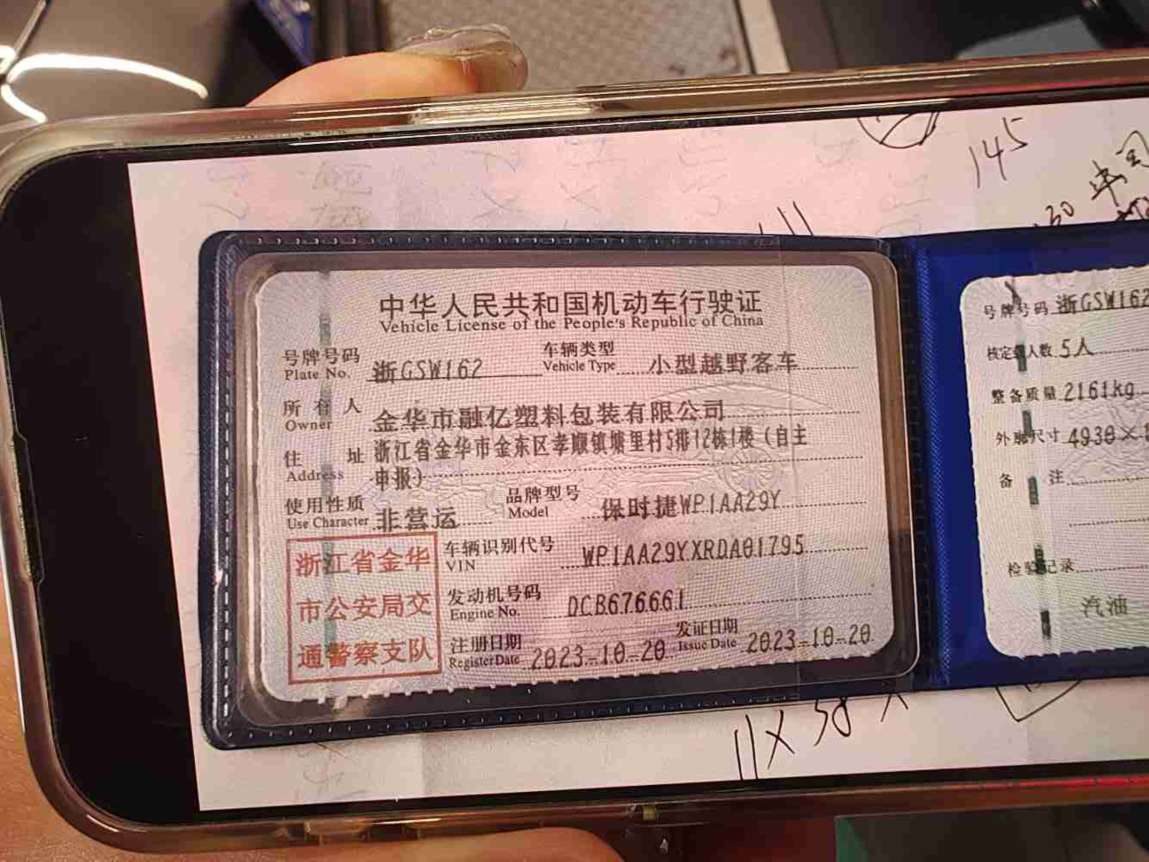 145
中华人民共和国机动车行驶证
Vehicle License of the People's Republic of China
号牌号码 浙GSW162 车辆类型 小型越野客车
Plate No. Vehicle Type
所有人 金华市融亿塑料包装有限公司
Owner
住址 浙江省金华市金东区孝顺镇塘里村5排12栋1楼（自主
Address 申报）
使用性质 非营运 品牌型号 保时捷WP1AA29Y
Use Character Model
浙江省金华
市公安局交
通警察支队
车辆识别代号 WP1AA29YXRDA01795
VIN
发动机号码 DCB676661
Engine No.
注册日期 2023-10-20 发证日期 2023-10-20
Register Date Issue Date
号牌号码 浙GSW162
核定载人数 5人
整备质量 2161kg
外廓尺寸 4930×
备注
检验记录
汽油
11×58×